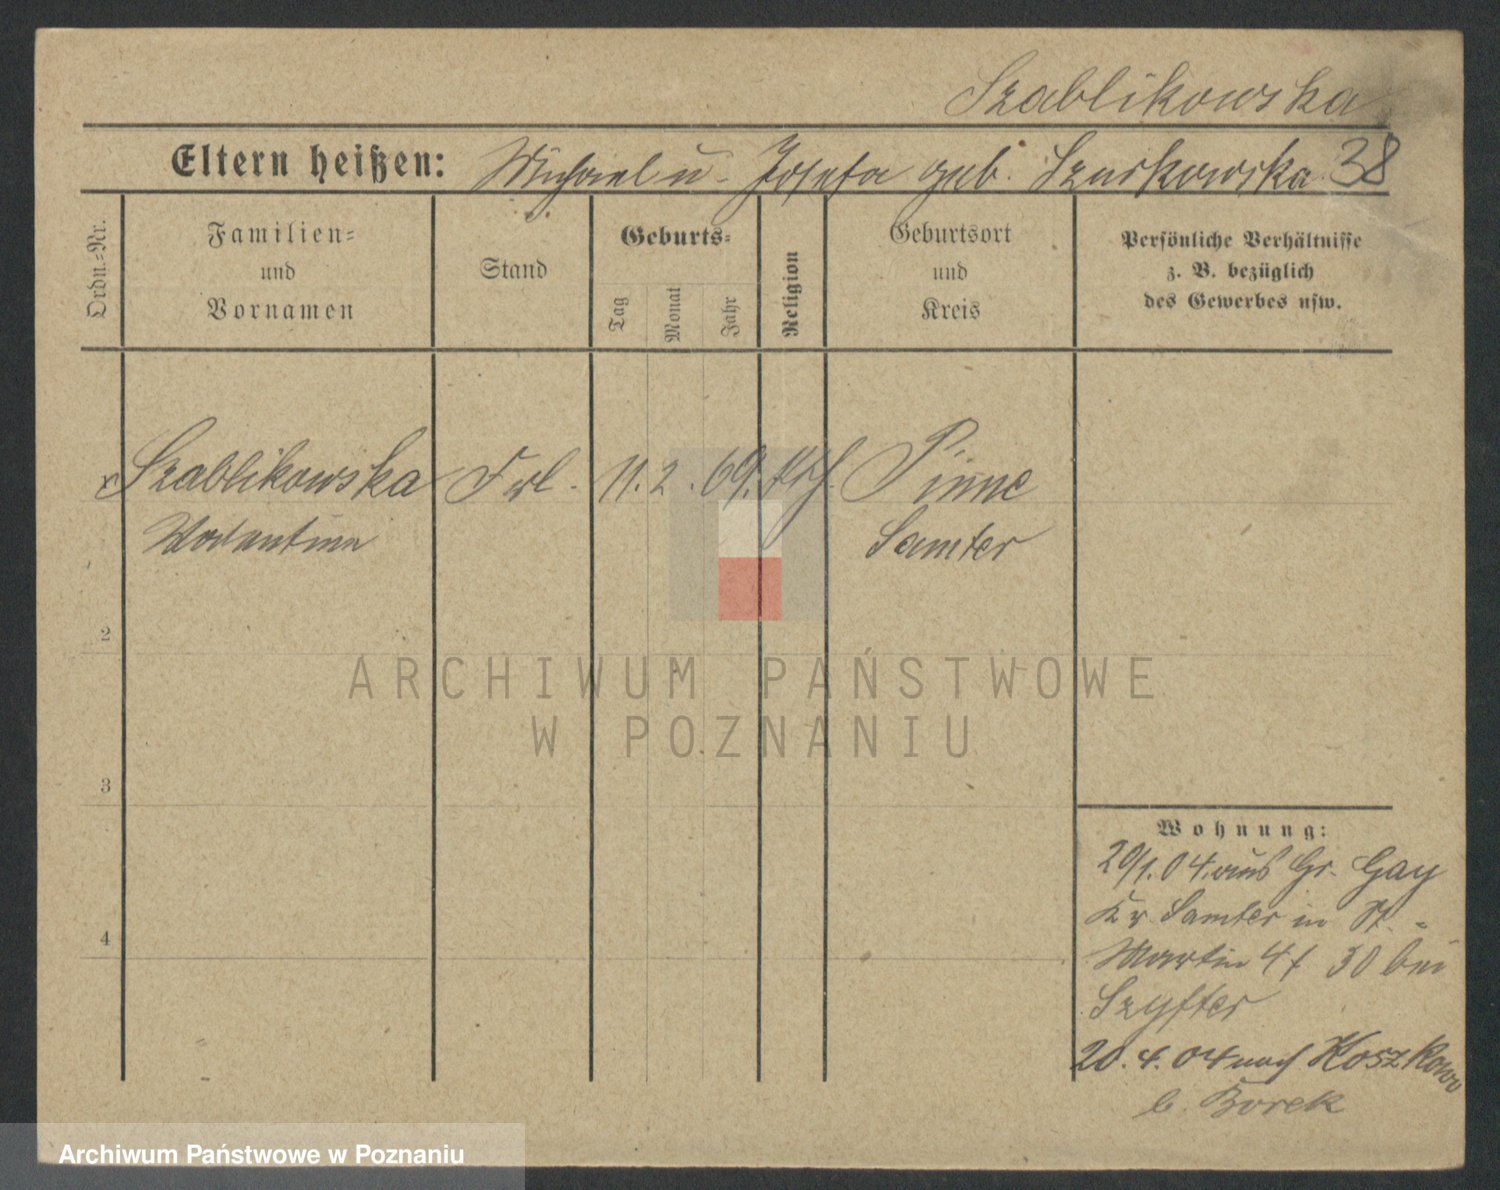 Szablikowska
Eltern heißen: Michael u. Josefa geb. Szurkowska 38
Ordn.=Nr.
Familien=
und
Vornamen
Stand
Geburts=
Tag
Monat
Jahr
Religion
Geburtsort
und
Kreis
Persönliche Verhältnisse
z. B. bezüglich
des Gewerbes usw.
Szablikowska Frl. 11. 2. 69. kth. Pinne
Samter
2
3
4
Wohnung:
20/1.04. aus Gr. Gay
Kr. Samter in St.=
Martin 41 30 bei
Szyfter
20.4.04 nach Koszkowo
b. Borek
ARCHIWUM PAŃSTWOWE
W POZNANIU
Archiwum Państwowe w Poznaniu